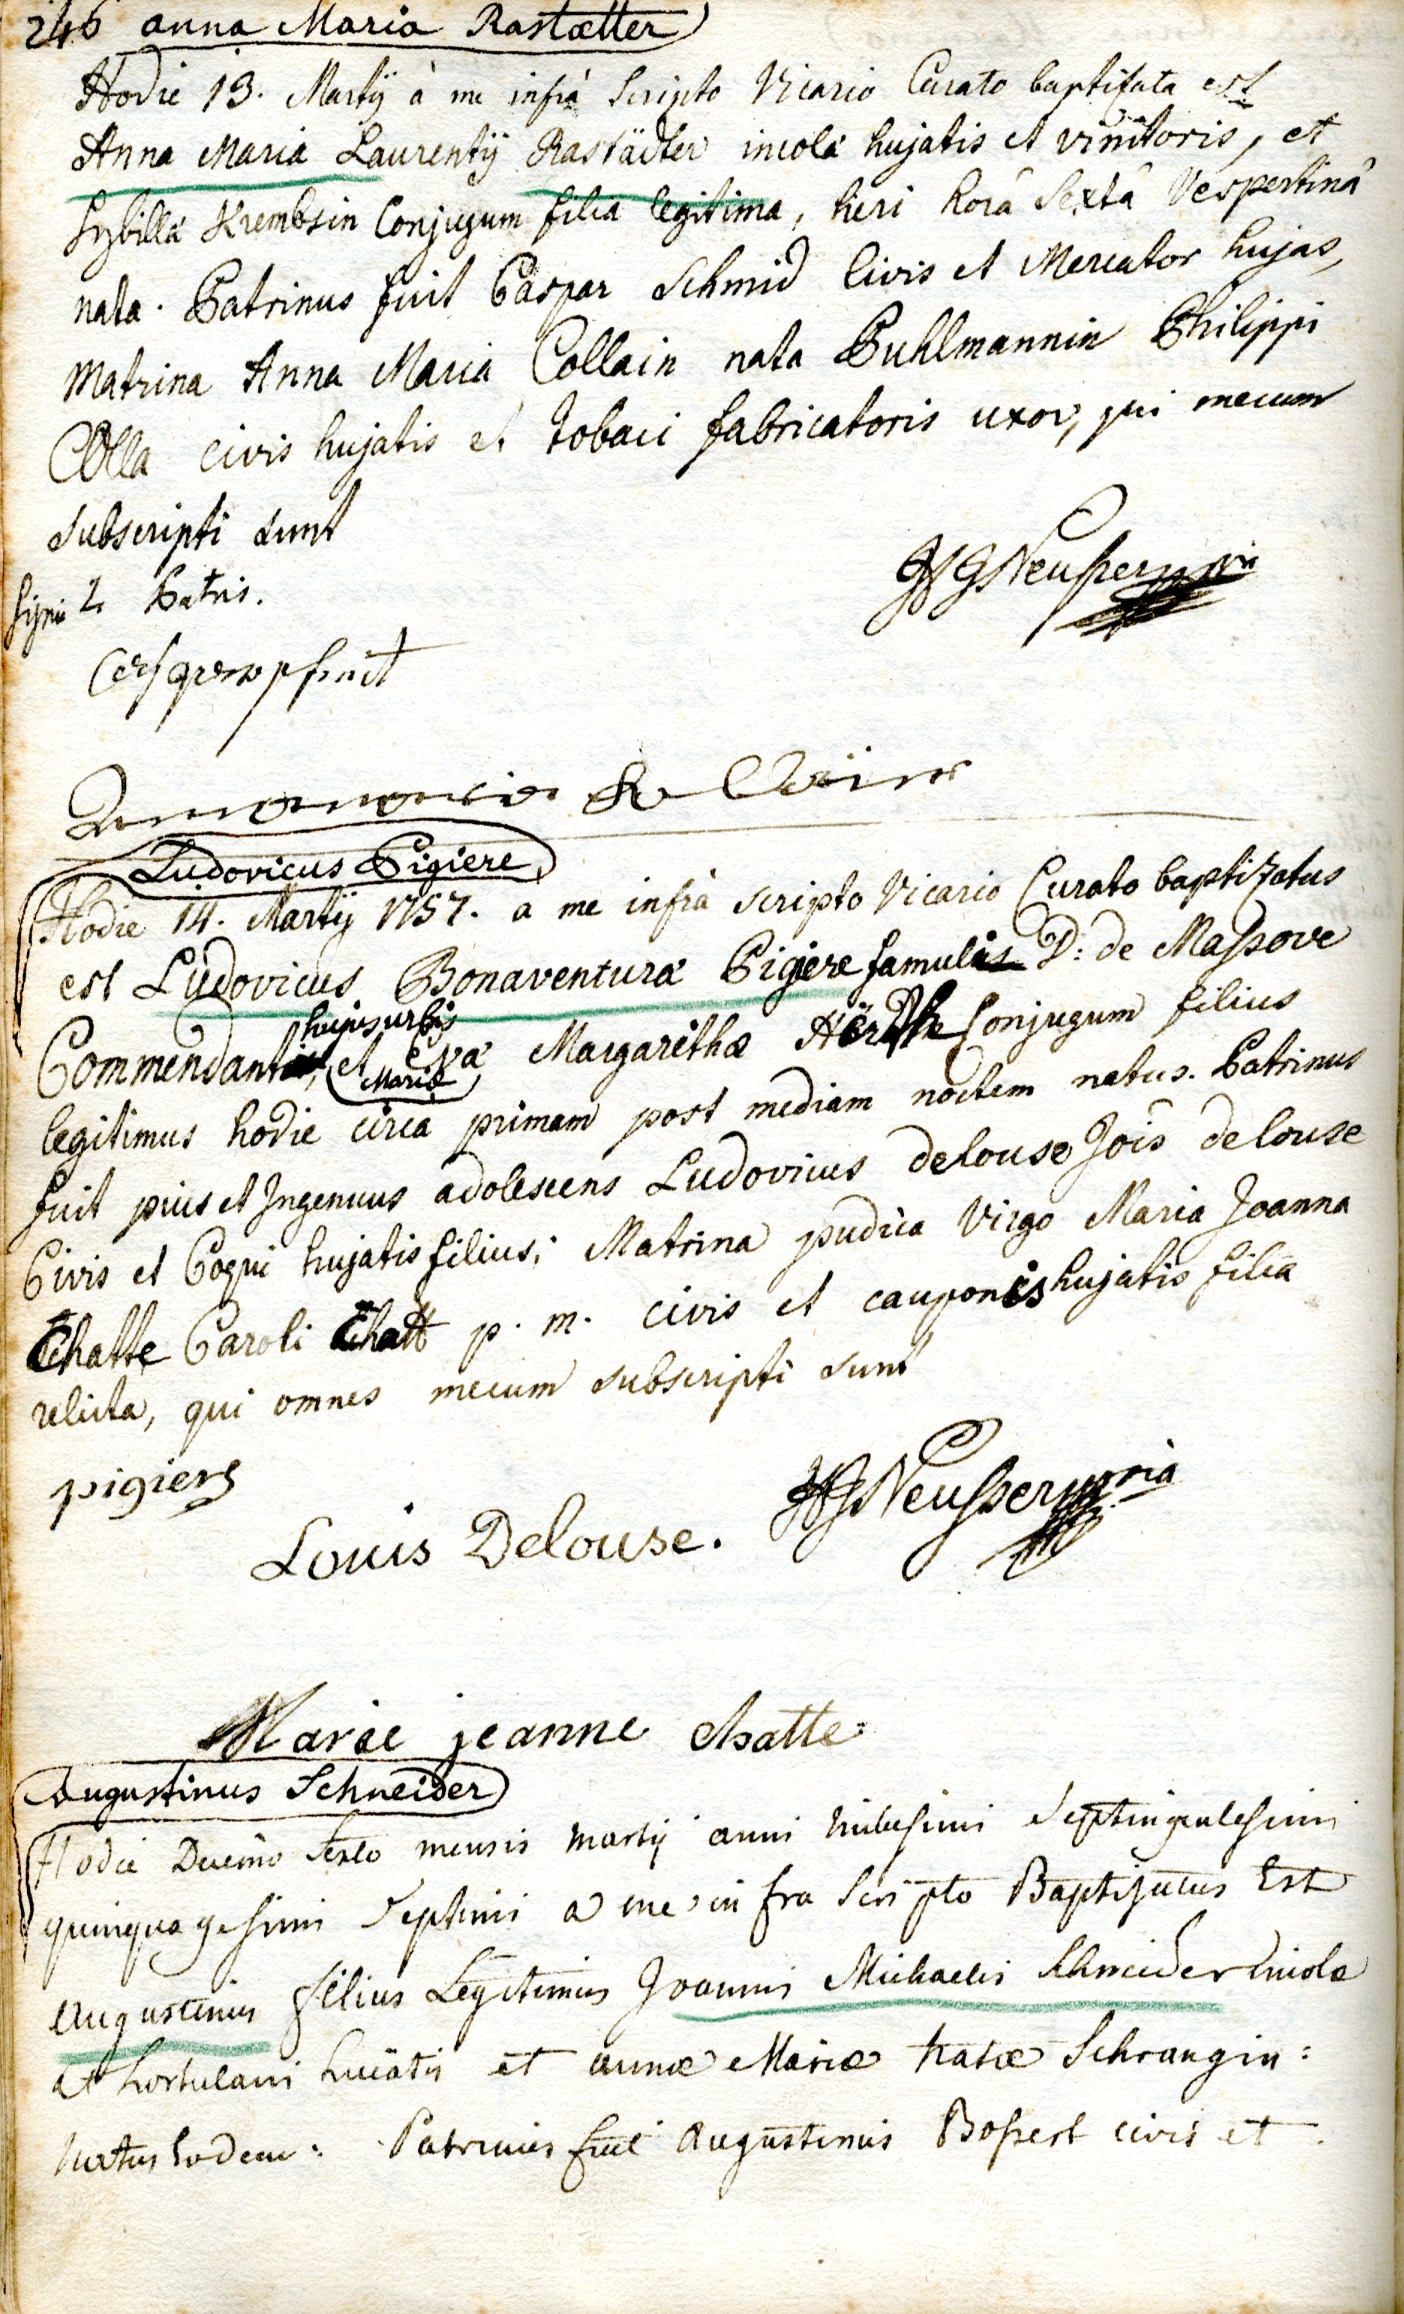 246 anna Maria Rastætter
Hodie 13. Martÿ à me infrà Scripto Vicario Curato baptisata est
Anna Maria Laurentÿ Rastädter incolæ hujatis et vinitoris, et
Sybilla Krembsin Conjugum filia legitima, heri horâ Sextâ Vespertinâ
nata. Patrinus fuit Caspar Schmid Civis et Mercator hujas,
Matrina Anna Maria Collain nata Puhlmannin Philippi
Colla civis hujatis et tobaci fabricatoris uxor, qui mecum
subscripti sunt
Patris.
Ludovicus Pigiere
Hodie 14. Martij 1757. a me infrà scripto Vicario Curato baptizatus
est Ludovicus Bonaventura Pigiere famulis D: de Massove
hujus urbis
Commendantis, et Eva Margarethæ Conjugum filius
Mariæ
legitimus hodie circa primam post mediam noctem natus. Patrinus
fuit pius et Ingenuus adolescens Ludovicus delouse Jois delouse
Civis et Coqui hujatis filius; Matrina pudica Virgo Maria Joanna
Chatte Caroli Chatt p. m. civis et cauponis hujatis filia
relicta, qui omnes mecum subscripti sunt
pigiere
Louis Delouse.
Marie jeanne chatte
Augustinus Schneider
Hodie Decimo Sexto mensis martij anni millesimi Septingentesimi
quinquagesimi Septimi a me infra Scripto Baptizatus Est
Augustinus filius Legitimus Joannis Michaelis Schneider Incolæ
et hortulani huiatis et annæ Mariæ natæ Schrangin:
natus Eodem: Patrinus fuit Augustinus Bossert civis et